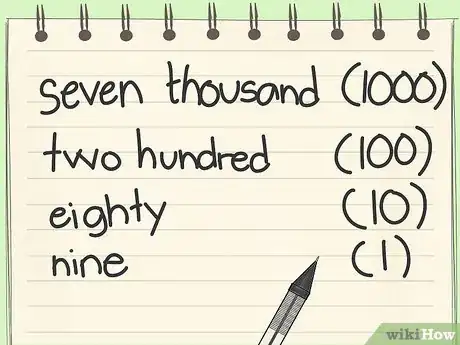 seven thousand (1000)
two hundred (100)
eighty (10)
nine (1)
wikiHow